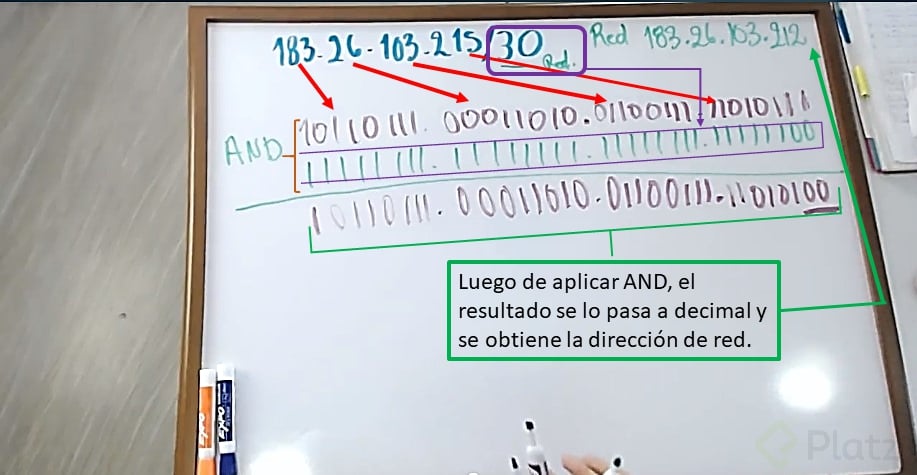 183.26.103.215/30 Red.
Red 183.26.103.212
AND
10110111.00011010.01100111.11010111
11111111.11111111.11111111.11111100
10110111.00011010.01100111.11010100
Luego de aplicar AND, el
resultado se lo pasa a decimal y
se obtiene la dirección de red.
EXPO
EXPO
Platz